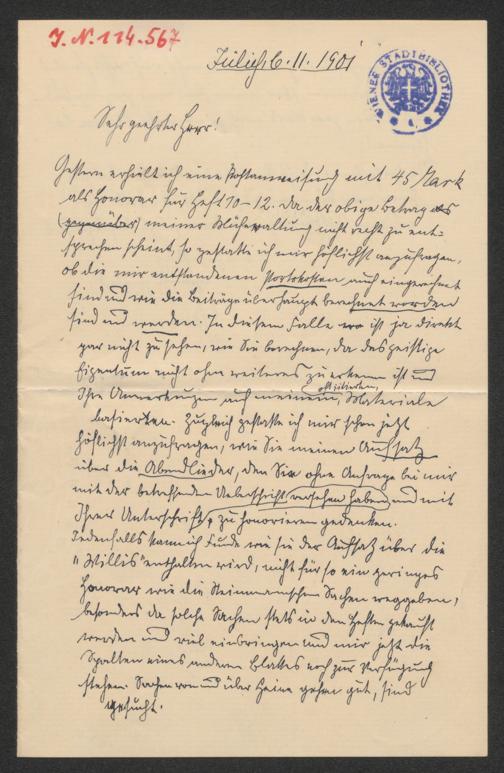 J. N. 114.567
Jülich 6. 11. 1901
WIENER STADTBIBLIOTHEK
Sehr geehrter Herr!
Gestern erhielt ich eine Postanweisung mit 45 Mark
als Honorar für Heft 10-12. Da der obige Betrag als
(gegenüber) meiner Mühewaltung nicht recht zu ent-
sprechen scheint, so gestatte ich mir höflichst anzufragen,
ob die mir entstandenen Portokosten auch eingerechnet
sind und wie die Beiträge überhaupt berechnet worden
sind und werden. In diesem Falle wo ist ja direkt
gar nicht zu sehen, wie Sie berechnen, da das geistige
Eigentum nicht ohne weiteres zu erkennen ist und
Ihre Anmerkungen auf meinem, oft zitierten, Materiale
basierten. Zugleich gestatte ich mir schon jetzt
höflichst anzufragen, wie Sie meinen Aufsatz
über die Abendlieder, den Sie ohne Anfrage bei mir
mit der betreffenden Ueberschrift versehen haben und mit
Ihrer Unterschrift, zu honorieren gedenken.
Jedenfalls kann ich Funde wie sie der Aufsatz über die
"Willis" enthalten wird, nicht für so ein geringes
Honorar wie die Steinmannschen Sachen weggeben,
besonders da solche Sachen stets in den Heften gekauft
werden und viel einbringen und mir jetzt die
Spalten eines anderen Blattes noch zur Verfügung
stehen. Sachen von und über Heine gehen gut, sind
gesucht.